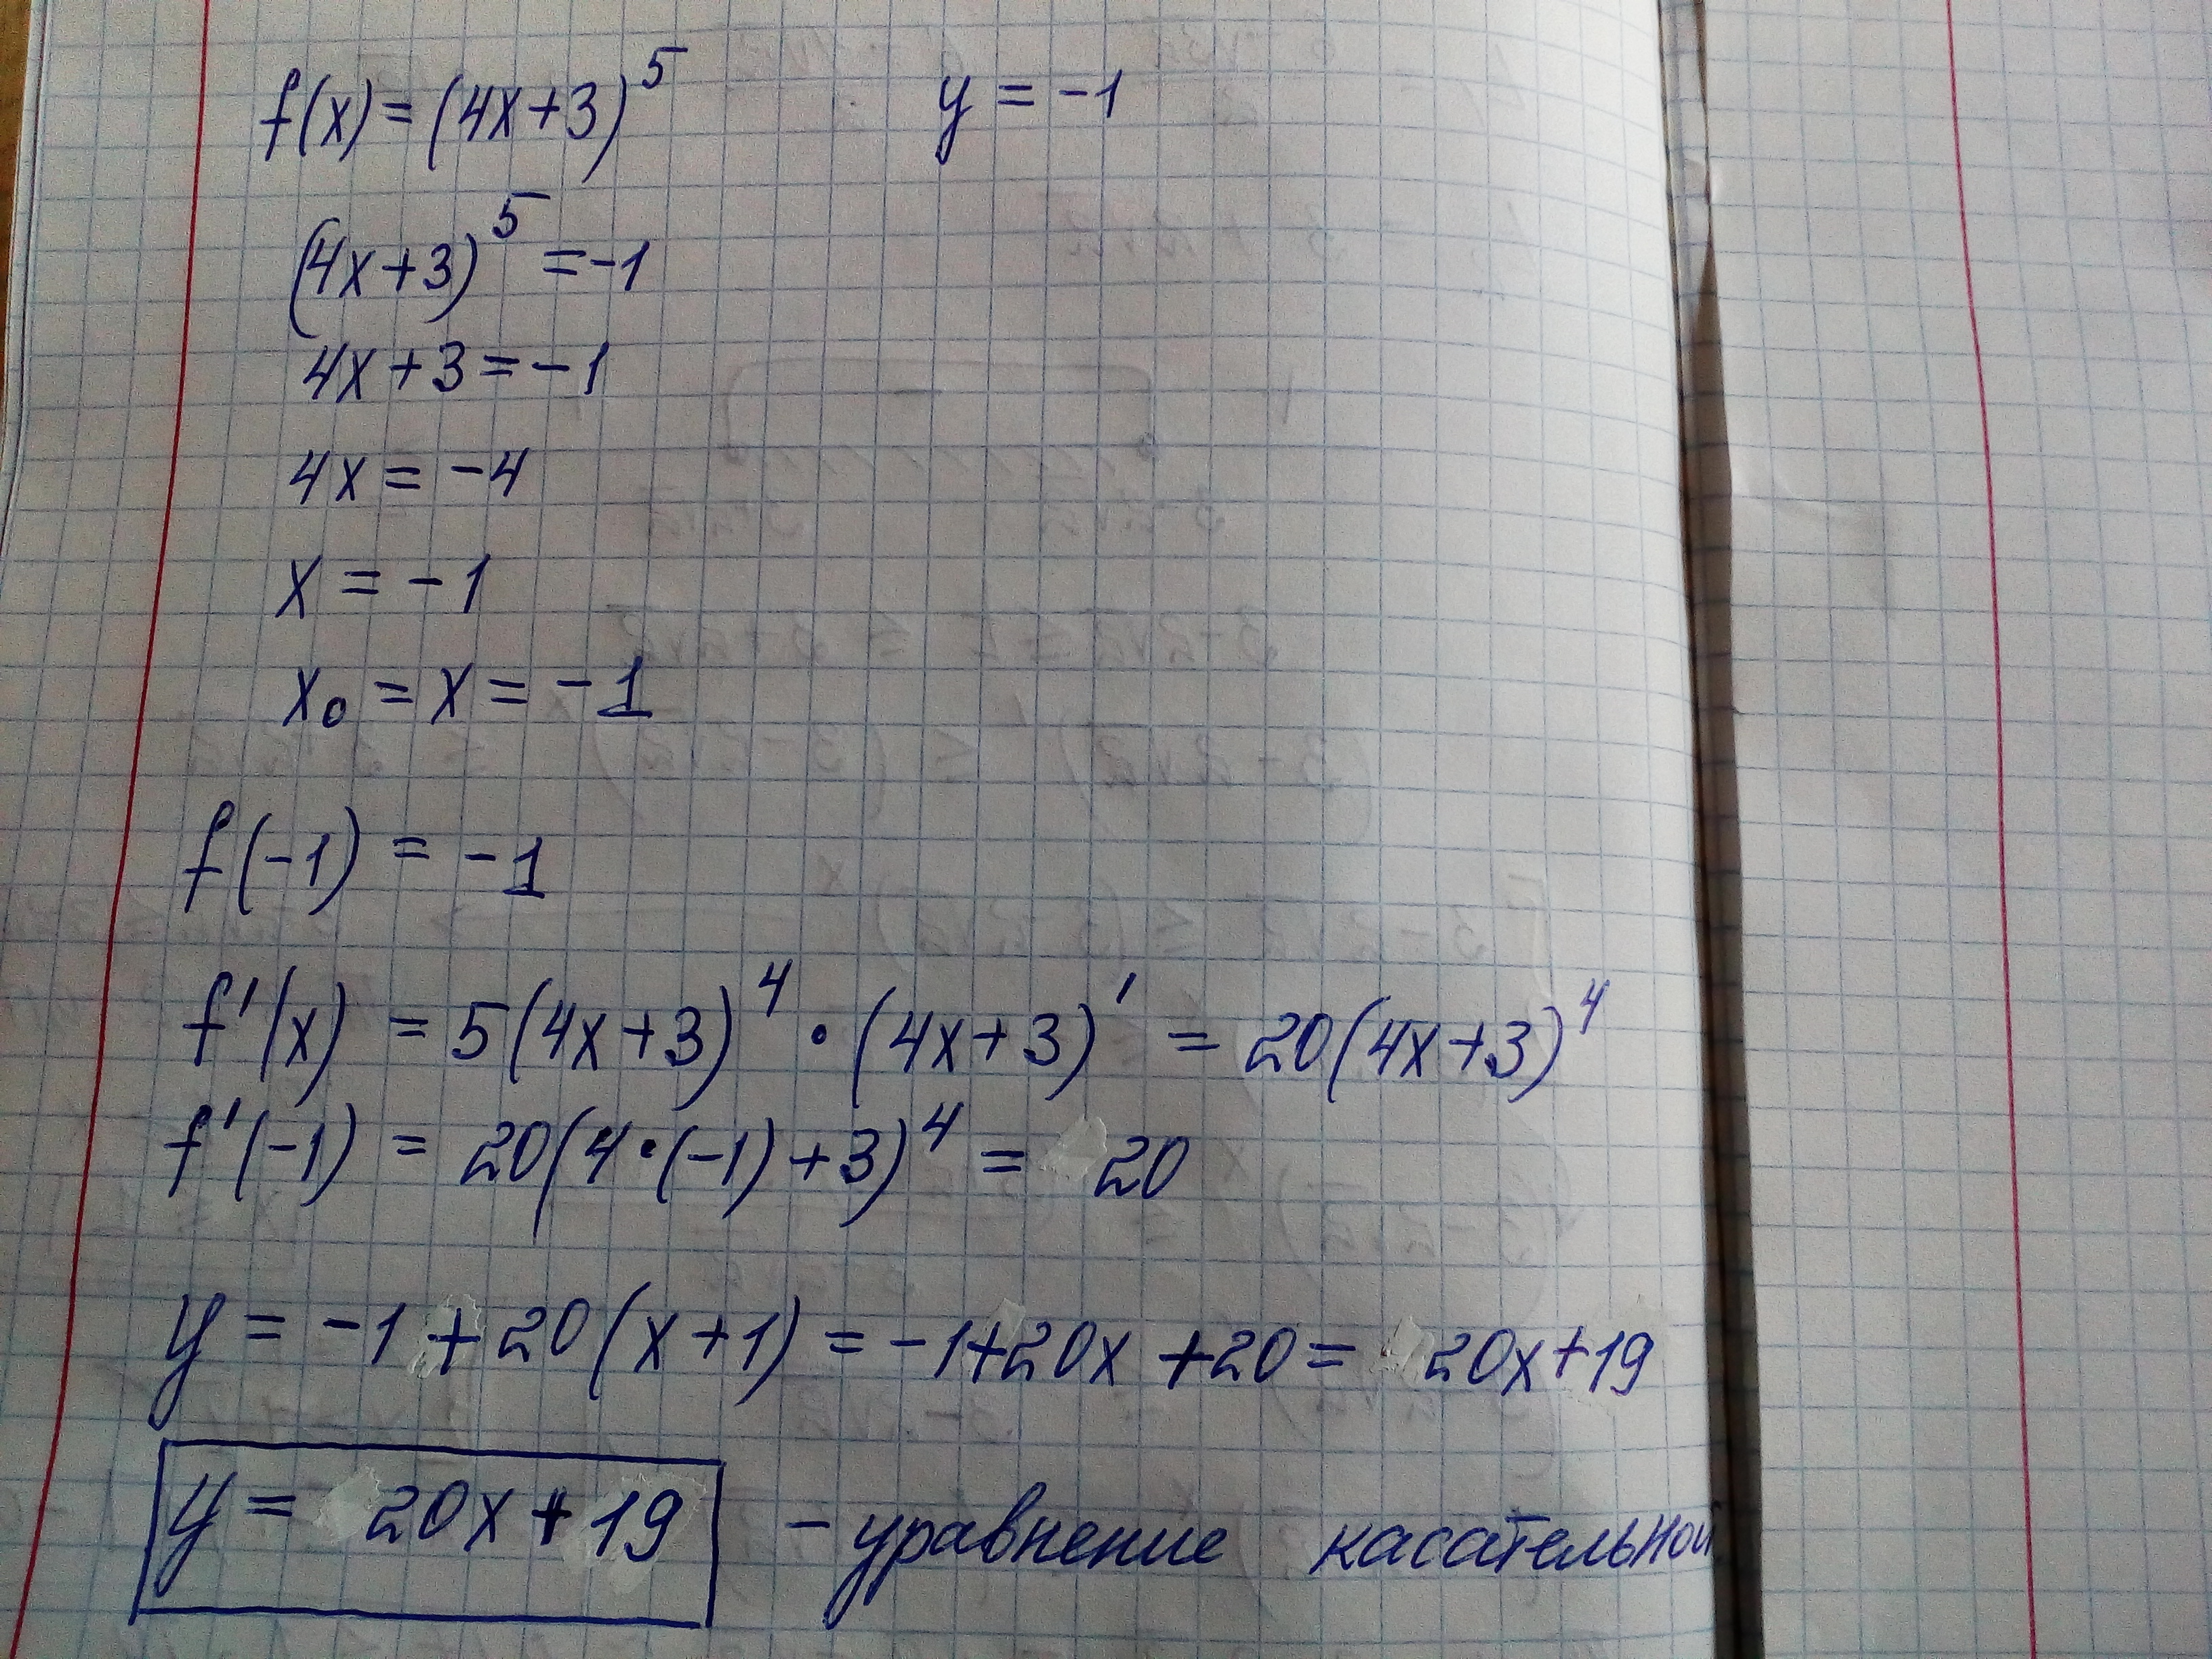 f(x) = (4x+3)^5    y = -1
(4x+3)^5 = -1
4x+3 = -1
4x = -4
x = -1
x₀ = x = -1
f(-1) = -1
f'(x) = 5(4x+3)^4 · (4x+3)' = 20(4x+3)^4
f'(-1) = 20(4·(-1)+3)^4 = 20
y = -1 + 20(x+1) = -1+20x+20 = 20x+19
y = 20x+19 - уравнение касательной